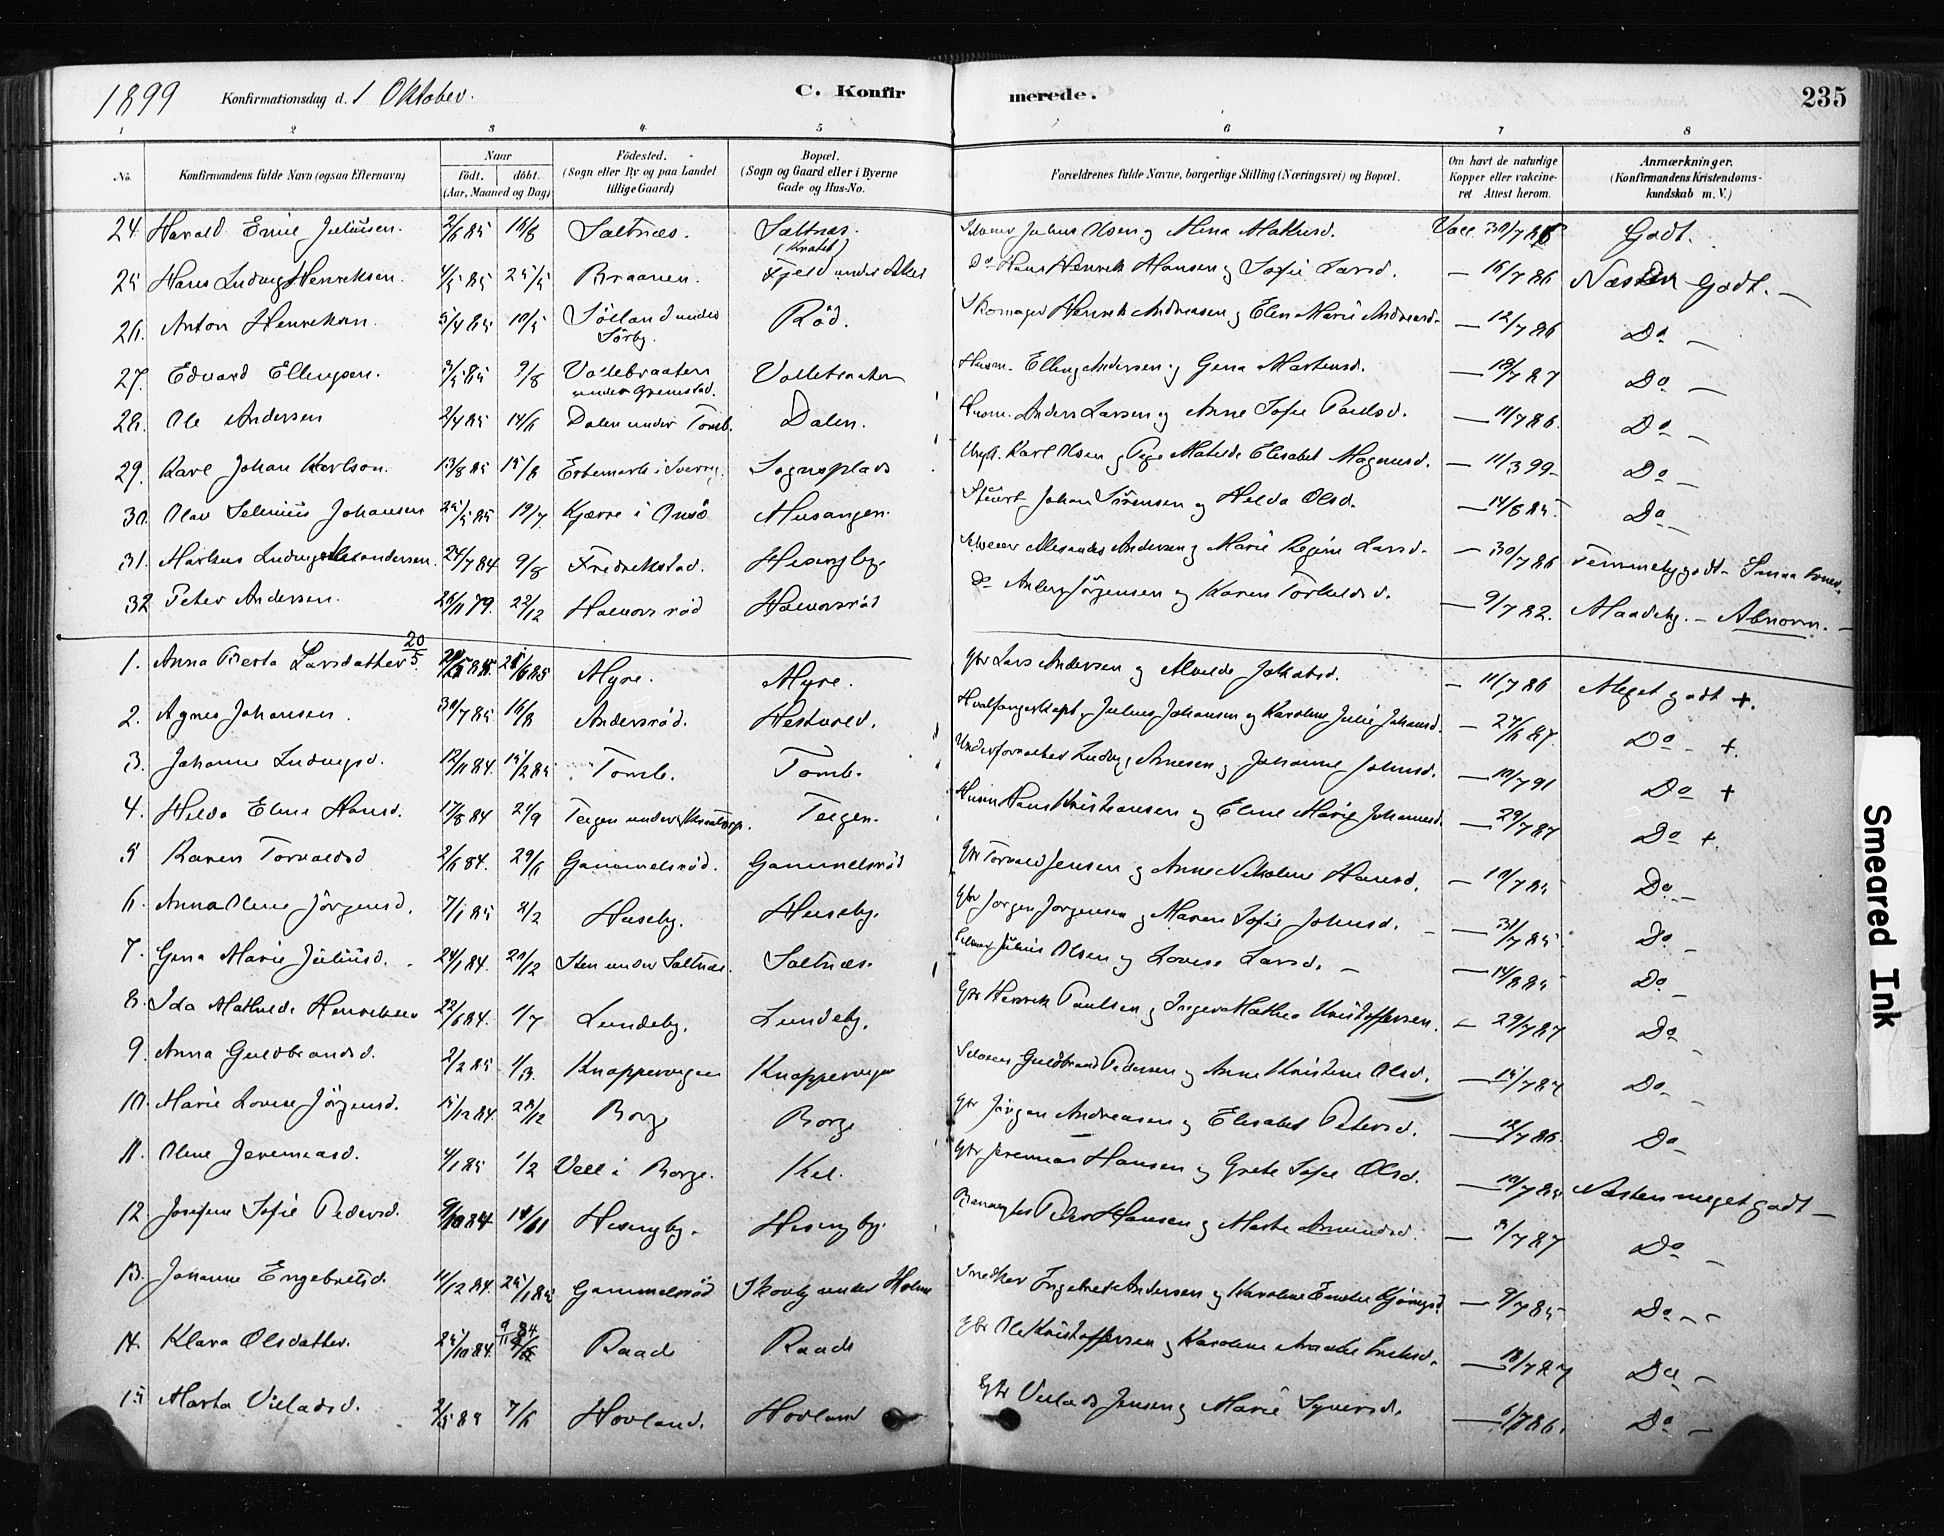 1899 Konfirmationsdag d. 1 Oktober. C. Konfirmerede. 235
1 2 3 4 5 6 7 8
No. Konfirmandens fulde Navn (ogsaa Efternavn) Naar födt. döbt. (Aar, Maaned og Dag) Födested. (Sogn eller By og paa Landet tillige Gaard) Bopæl. (Sogn og Gaard eller i Byerne Gade og Hus-No. Forældrenes fulde Navne, borgerlige Stilling (Næringsvei) og Bopæl. Om havt de naturlige Kopper eller vakcineret Attest herom. Anmærkninger. (Konfirmandens Kristendomskundskab m. V.)
24. Harald Emil Juliusen. 2/6 85 16/8 Saltnæs. Saltnæs. (Kratet) Julius Olsen og Mina Mathisd. Vacc. 30/7 86 Godt.
25 Hans Ludvig Henriksen. 4/5 85 25/5 Braanen. Fjeld under Do Hans Henrik Hansen og Sofie Larsd. — 16/7 86 Næsten Godt. —
26. Anton Henriksen. 5/4 85 10/5 Sölland under Sörby. Röd. Skomager Henrik Andreasen og Elen Marie Andreasd. — 12/7 86 Do —
27. Edvard Ellingsen. 3/5 85 9/8 Vollebraaten under Grimstad. Vollebraaten Husm. Elling Andersen og Gina Martinsd. — 18/7 87 Do —
28. Ole Andersen 2/4 85 14/6 Dalen under Tomb. Dalen. Husm. Anders Larsen og Anne Sofie Paulsd. — 11/7 86. Do —
29. Karl Johan Karlson. 13/8 85 15/8 i Sverrig. Sognsplads Ungk. Karl Olsen og Pige Matilde Elisabet Magnusd. — 11/3 99 — Do —
30. Olav Selmius Johansen 25/5 85 19/7 Kjærre i Onsö Musangen. Stuert Johan Sörensen og Hilda Olsd. — 14/8 85. Do —
31. Markus Ludvig Alexandersen. 24/7 84 9/8 Fredrikstad. Hesengby. Alexander Andersen og Marie Regine Larsd. — 30/7 86 Temmelig godt —
32 Peter Andersen. 26/11 79. 22/12 Halvorsröd Halvorsröd Do Anders Jörgensen og Karen Torkildsd. — 9/7 82. Maadelig. — Abnorm. —
1. Anna Berta Larsdatter 20/5. 85 Myre. Myre. Gbr Lars Andersen og Alvilde Jakobsd. — 11/7 86 Meget godt +.
2. Agnes Johansen. 30/7 85 16/8 Andersröd. Hestvold. Hvalfangerkapt. Julius Johansen og Karoline Julie Johansd. — 27/6 87. Do — +.
3. Johanne Ludvigsd. 12/11 84. 15/2 85 Tomb. Tomb. Underforvalter Ludvig Arnesen og Johanne Johnsd. — 10/7 91 Do +
4. Hilda Eline Hansd. 17/8 84 21/9 Teigen under Teigen. Husm Hans Kristiansen og Eline Marie Johannesd. — 29/7 87 Do +.
5 Karen Torvaldsd 2/6 84. 29/6 Gammelsröd. Gammelsröd Gbr Torvald Jensen og Anne Nikoline Hansd. — 10/7 85 Do —
6. Anna Oline Jörgensd. 7/1 85 8/2 Huseby. Huseby. Gbr Jörgen Jörgensen og Maren Sofie Johnsd. — 31/7 85. Do —
7. Gina Marie Juliusd. 24/1 84. 20/12 Sten under Saltnæs. Saltnæs. Julius Olsen og Lovise Larsd. — 14/8 85 Do —
8. Ida Mathilde Henriksen 22/6 84. 1/7 Lundeby. Lundeby. Gbr Henrik Paulsen og Inger Mathea Kristoffersen. — 29/7 87 Do
9. Anna Guldbrandsd. 2/2 85 1/3. Knappervegen Knappervegen Guldbrand Pedersen og Anne Kristine Olsd. — 15/7 87 Do —
10. Marie Lovise Jörgensd. 15/12 84. 28/12 Borge Borge Gbr Jörgen Andreasen og Elisabet Petersd. — 12/7 86. Do —
11. Oline Jeremiasd. 4/1 85 1/2 i Borge. Kil. Gbr Jeremias Hansen og Grete Sofie Olsd. — 10/7 85 Næsten meget godt —
12. Josefine Sofie Pedersd. 9/10 84 Hesengby. Hesengby. Peder Hansen og Marte Amundsd. — 5/7 87 Do —
13. Johanne Engebretsd. 11/12 84. 25/1 85 Gammelsröd Skovly under Holm Snedker Engebret Andersen og Karoline — 9/7 85 Do — —
14. Klara Olsdatter. 25/10 84. 9/11 84 Raade Raade Gbr Ole Kristoffersen og Karoline — 18/7 87 Do —
15 Marta Villadsd. 2/5 85 7/6 Hovland. Hovland Gbr Villads Jensen og Marie Syversd. — 6/7 86. Do —
Smeared Ink